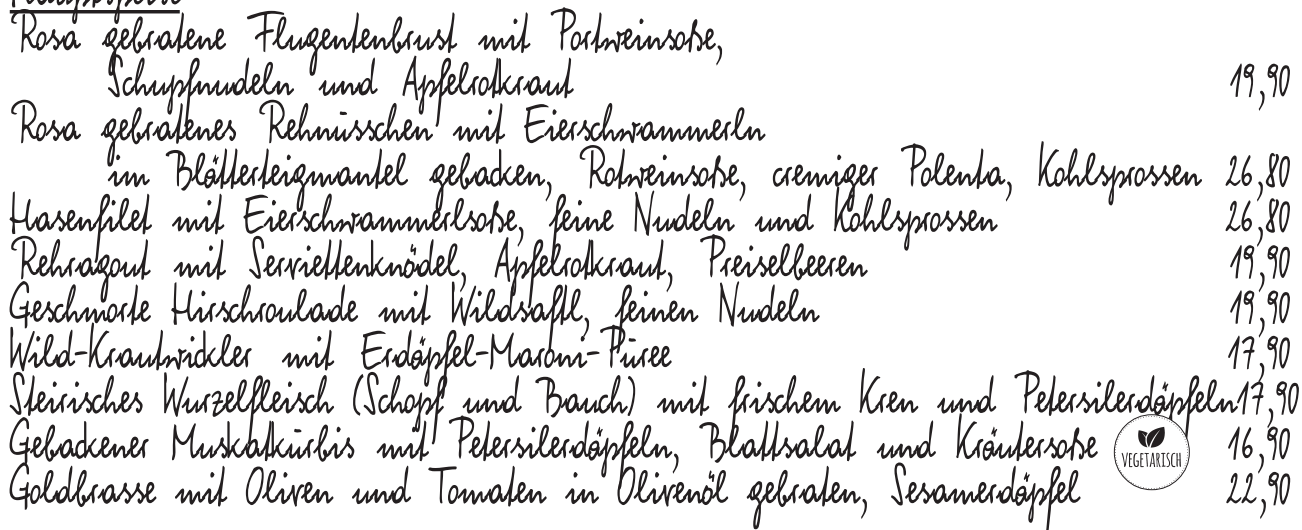 Rosa gebratene Flugentenbrust mit Portweinsoße,
Schupfnudeln und Apfelrotkraut 19,90
Rosa gebratenes Rehnüsschen mit Eierschwammerln
im Blätterteigmantel gebacken, Rotweinsoße, cremiger Polenta, Kohlsprossen 26,80
Hasenfilet mit Eierschwammerlsoße, feine Nudeln und Kohlsprossen 26,80
Rehragout mit Serviettenknödel, Apfelrotkraut, Preiselbeeren 19,90
Geschmorte Hirschroulade mit Wildsaftl, feinen Nudeln 19,90
Wild-Krautwickler mit Erdäpfel-Maroni-Püree 17,90
Steirisches Wurzelfleisch (Schopf und Bauch) mit frischem Kren und Petersilerdäpfeln 17,90
Gebackener Muskatkürbis mit Petersilerdäpfeln, Blattsalat und Kräutersoße VEGETARISCH 16,90
Goldbrasse mit Oliven und Tomaten in Olivenöl gebraten, Sesamerdäpfel 22,90